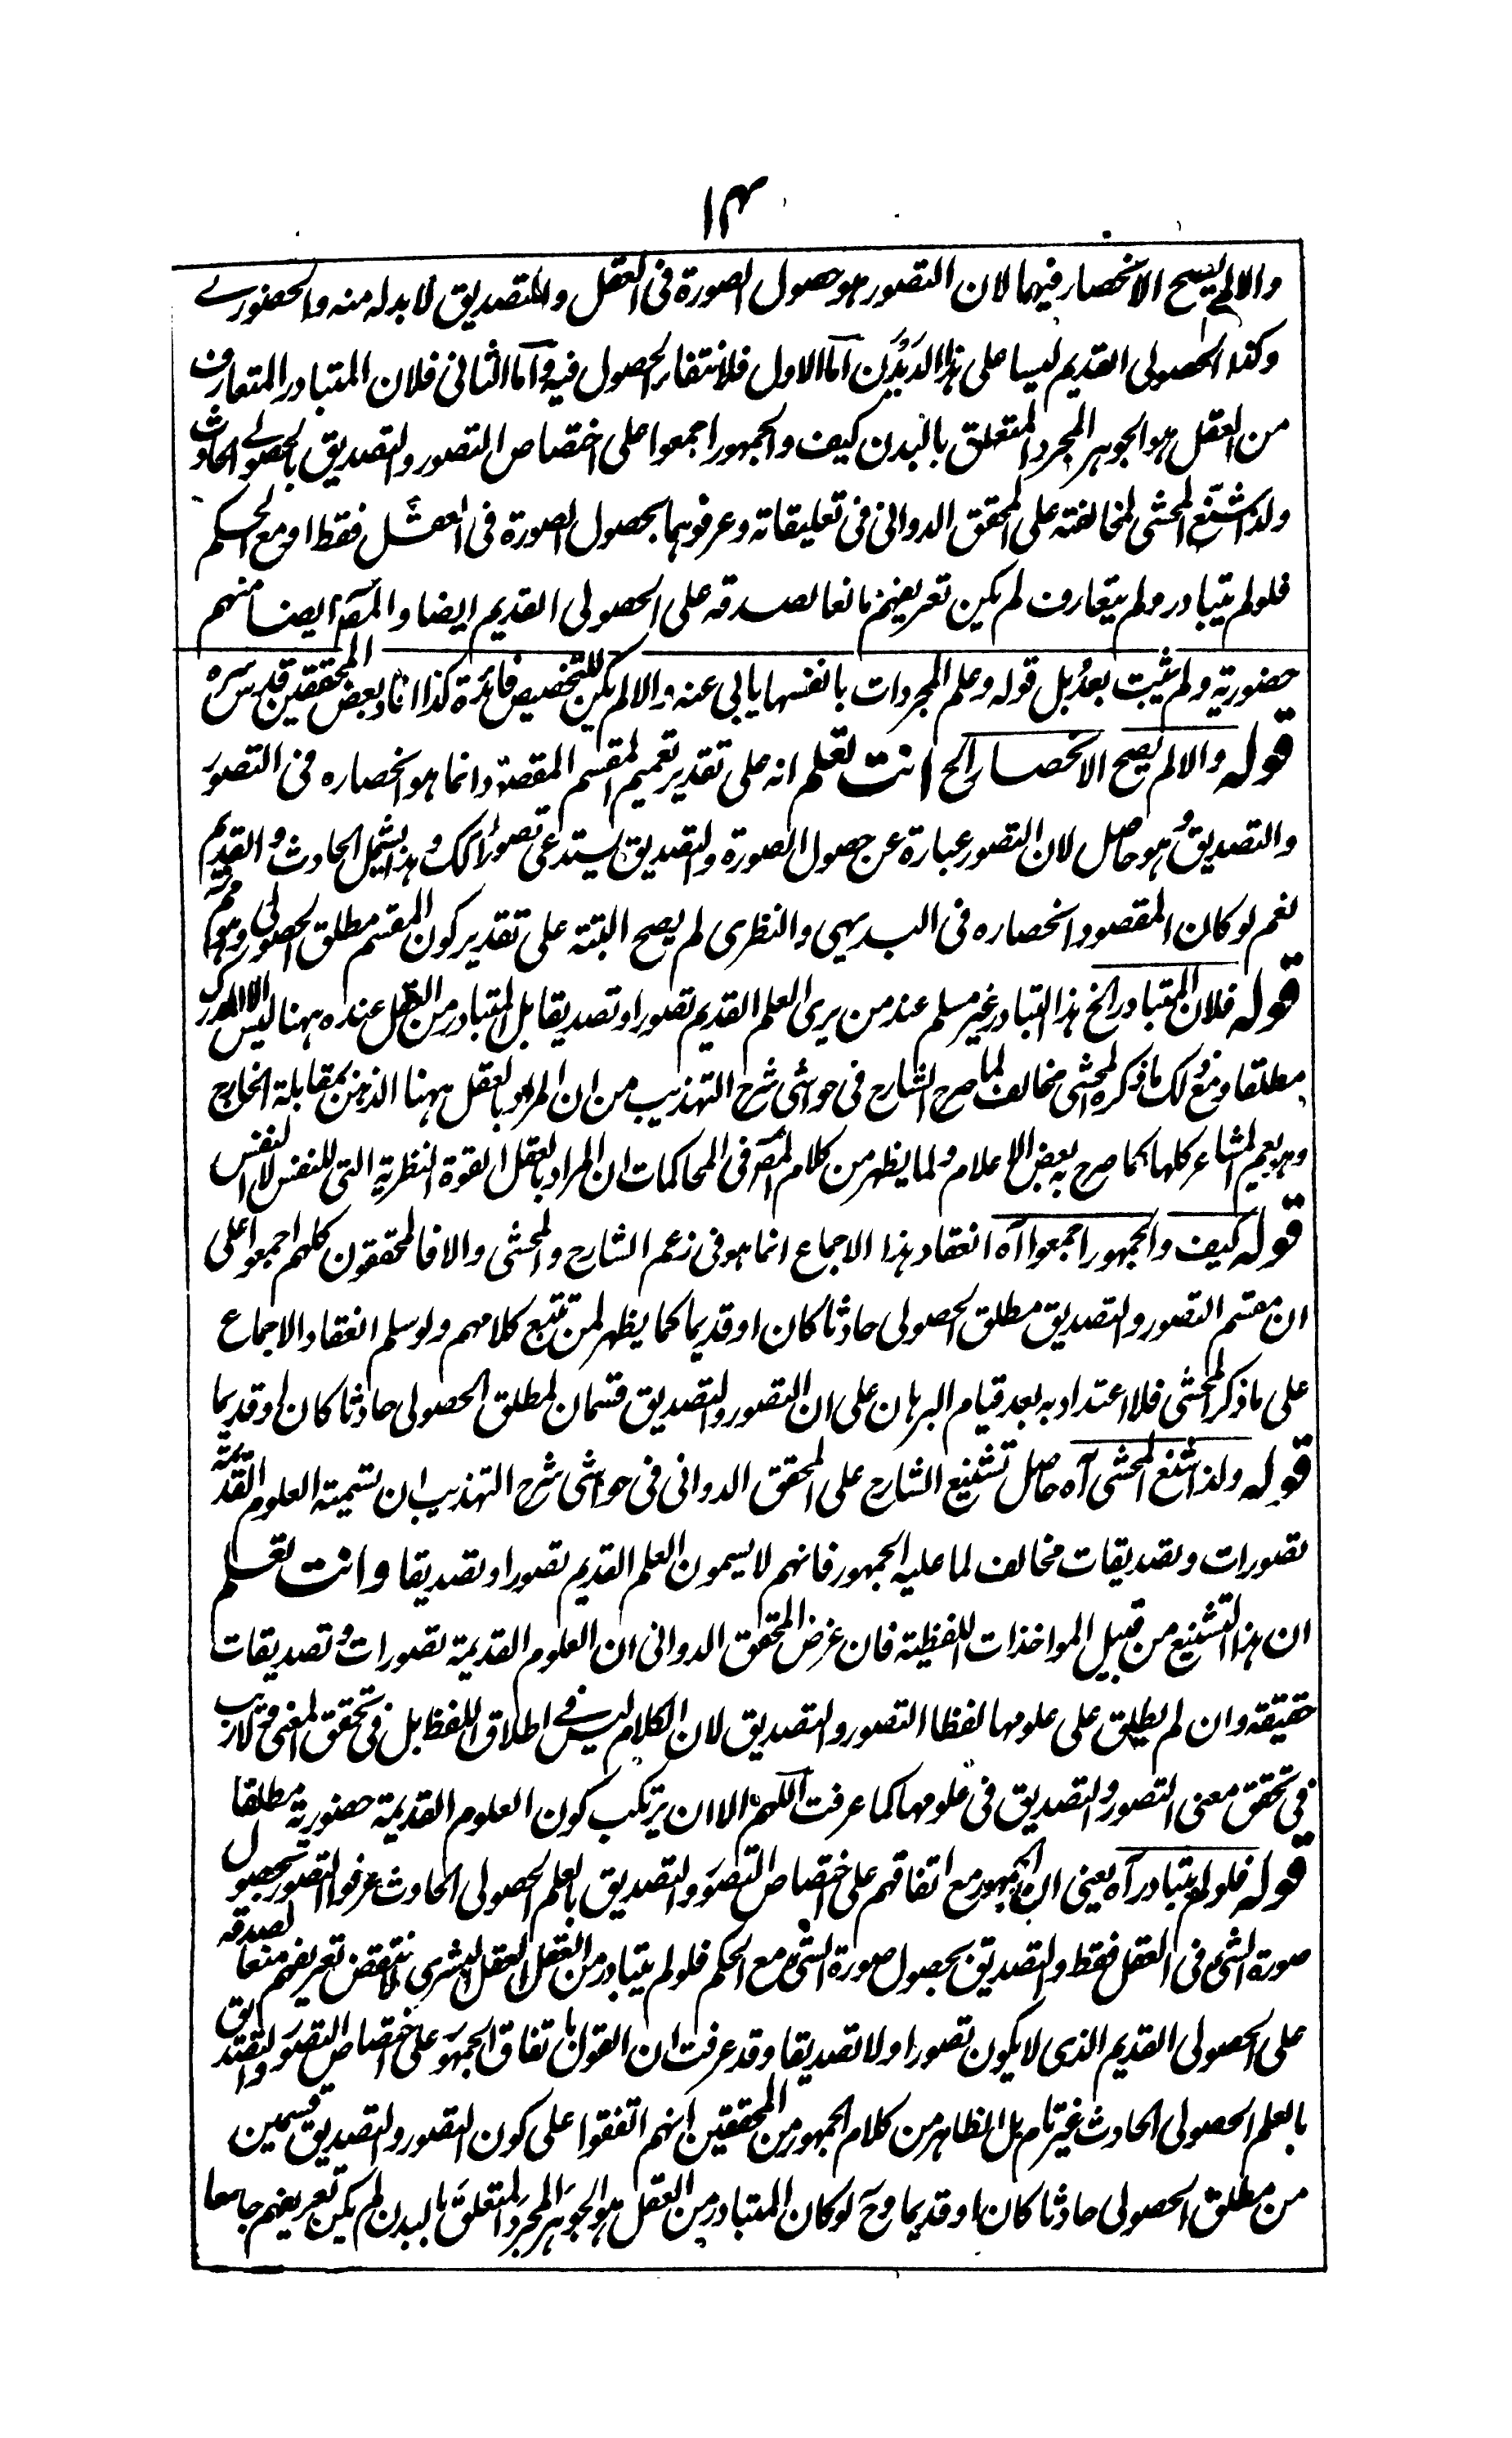 ١٤
والا لم يصح الانحصار فيهما لان التصور هو حصول الصورة فى العقل والتصديق لا بد له منه والحضورى
وكذا الحصولى القديم ليسا على هذا الديدن اما الاول فلانتفاء الحصول فيه واما الثانى فلان المتبادر المتعارف
من العقل هو الجوهر المجرد المتعلق بالبدن كيف والجمهور اجمعوا على اختصاص التصور والتصديق بالحصولى الحادث
ولذا شنع المحشى لمخالفته على المحقق الدوانى فى تعليقاته وعرفوهما بحصول الصورة فى العقل فقط او مع الحكم
فلو لم يتبادر ولم يتعارف لم يكن تعريفهم مانعا لصدقه على الحصولى القديم ايضا والمص ايضا منهم
حضورية ولم يثبت بعد بل قوله وعلم المجردات بانفسها يابى عنه والا لم يكن للتخصيص فائدة كذا افاد بعض المحققين قدس سره
قوله والا لم يصح الانحصار الخ انت تعلم انه على تقدير تعميم المقسم المقصود انما هو انحصاره فى التصور
والتصديق وهو حاصل لان التصور عبارة عن حصول الصورة والتصديق يستدعى تصورا كك وهذا يشمل الحادث والقديم
نعم لو كان المقصود انحصاره فى البديهى والنظرى لم يصح البتة على تقدير كون المقسم مطلق الحصولى وهو مم
قوله فلان المتبادر الخ هذا التبادر غير مسلم عند من يرى العلم القديم تصورا وتصديقا بل المتبادر من العقل عنده ههنا ليس الا المدرك
مطلقا ومع ذلك ما ذكره المحشى مخالف لما صرح الشارح فى حواشى شرح التهذيب من ان المراد بالعقل ههنا الذهن بمقابلة الخارج
وهو يعم المشاعر كلها كما صرح به بعض الاعلام ولما يظهر من كلام المص فى المحاكمات ان المراد بالعقل القوة النظرية التى للنفس لا النفس
قوله كيف والجمهور اجمعوا آه انعقاد هذا الاجماع انما هو فى زعم الشارح والمحشى والا فالمحققون كلهم اجمعوا على
ان مقسم التصور والتصديق مطلق الحصولى حادثا كان او قديما كما يظهر لمن تتبع كلامهم ولو سلم انعقاد الاجماع
على ما ذكر المحشى فلا اعتداد به بعد قيام البرهان على ان التصور والتصديق قسمان لمطلق الحصولى حادثا كان او قديما
قوله ولذا شنع المحشى آه حاصل تشنيع الشارح على المحقق الدوانى فى حواشى شرح التهذيب ان تسمية العلوم القديمة
تصورات وتصديقات مخالف لما عليه الجمهور فانهم لا يسمون العلم القديم تصورا وتصديقا وانت تعلم
ان هذا التشنيع من قبيل المواخذات اللفظية فان غرض المحقق الدوانى ان العلوم القديمة تصورات وتصديقات
حقيقة وان لم يطلق على علومها لفظا التصور والتصديق لان الكلام ليس فى اطلاق اللفظ بل فى تحقق المعنى وح لا ريب
فى تحقق معنى التصور والتصديق فى علومها كما عرفت اللهم الا ان يرتكب كون العلوم القديمة حضورية مطلقا
قوله فلو لم يتبادر آه يعنى ان الجمهور مع اتفاقهم على اختصاص التصور والتصديق بالعلم الحصولى الحادث عرفوا التصور بحصول
صورة الشئ فى العقل فقط والتصديق بحصول صورة الشئ مع الحكم فلو لم يتبادر من العقل العقل البشرى لانتقض تعريفهم منعا لصدقه
على الحصولى القديم الذى لا يكون تصورا ولا تصديقا وقد عرفت ان القول باتفاق الجمهور على اختصاص التصور والتصديق
بالعلم الحصولى الحادث غير تام بل الظاهر من كلام الجمهور من المحققين انهم اتفقوا على كون التصور والتصديق قسمين
من مطلق الحصولى حادثا كان او قديما وح لو كان المتبادر من العقل هو الجوهر المجرد المتعلق بالبدن لم يكن تعريفهم جامعا